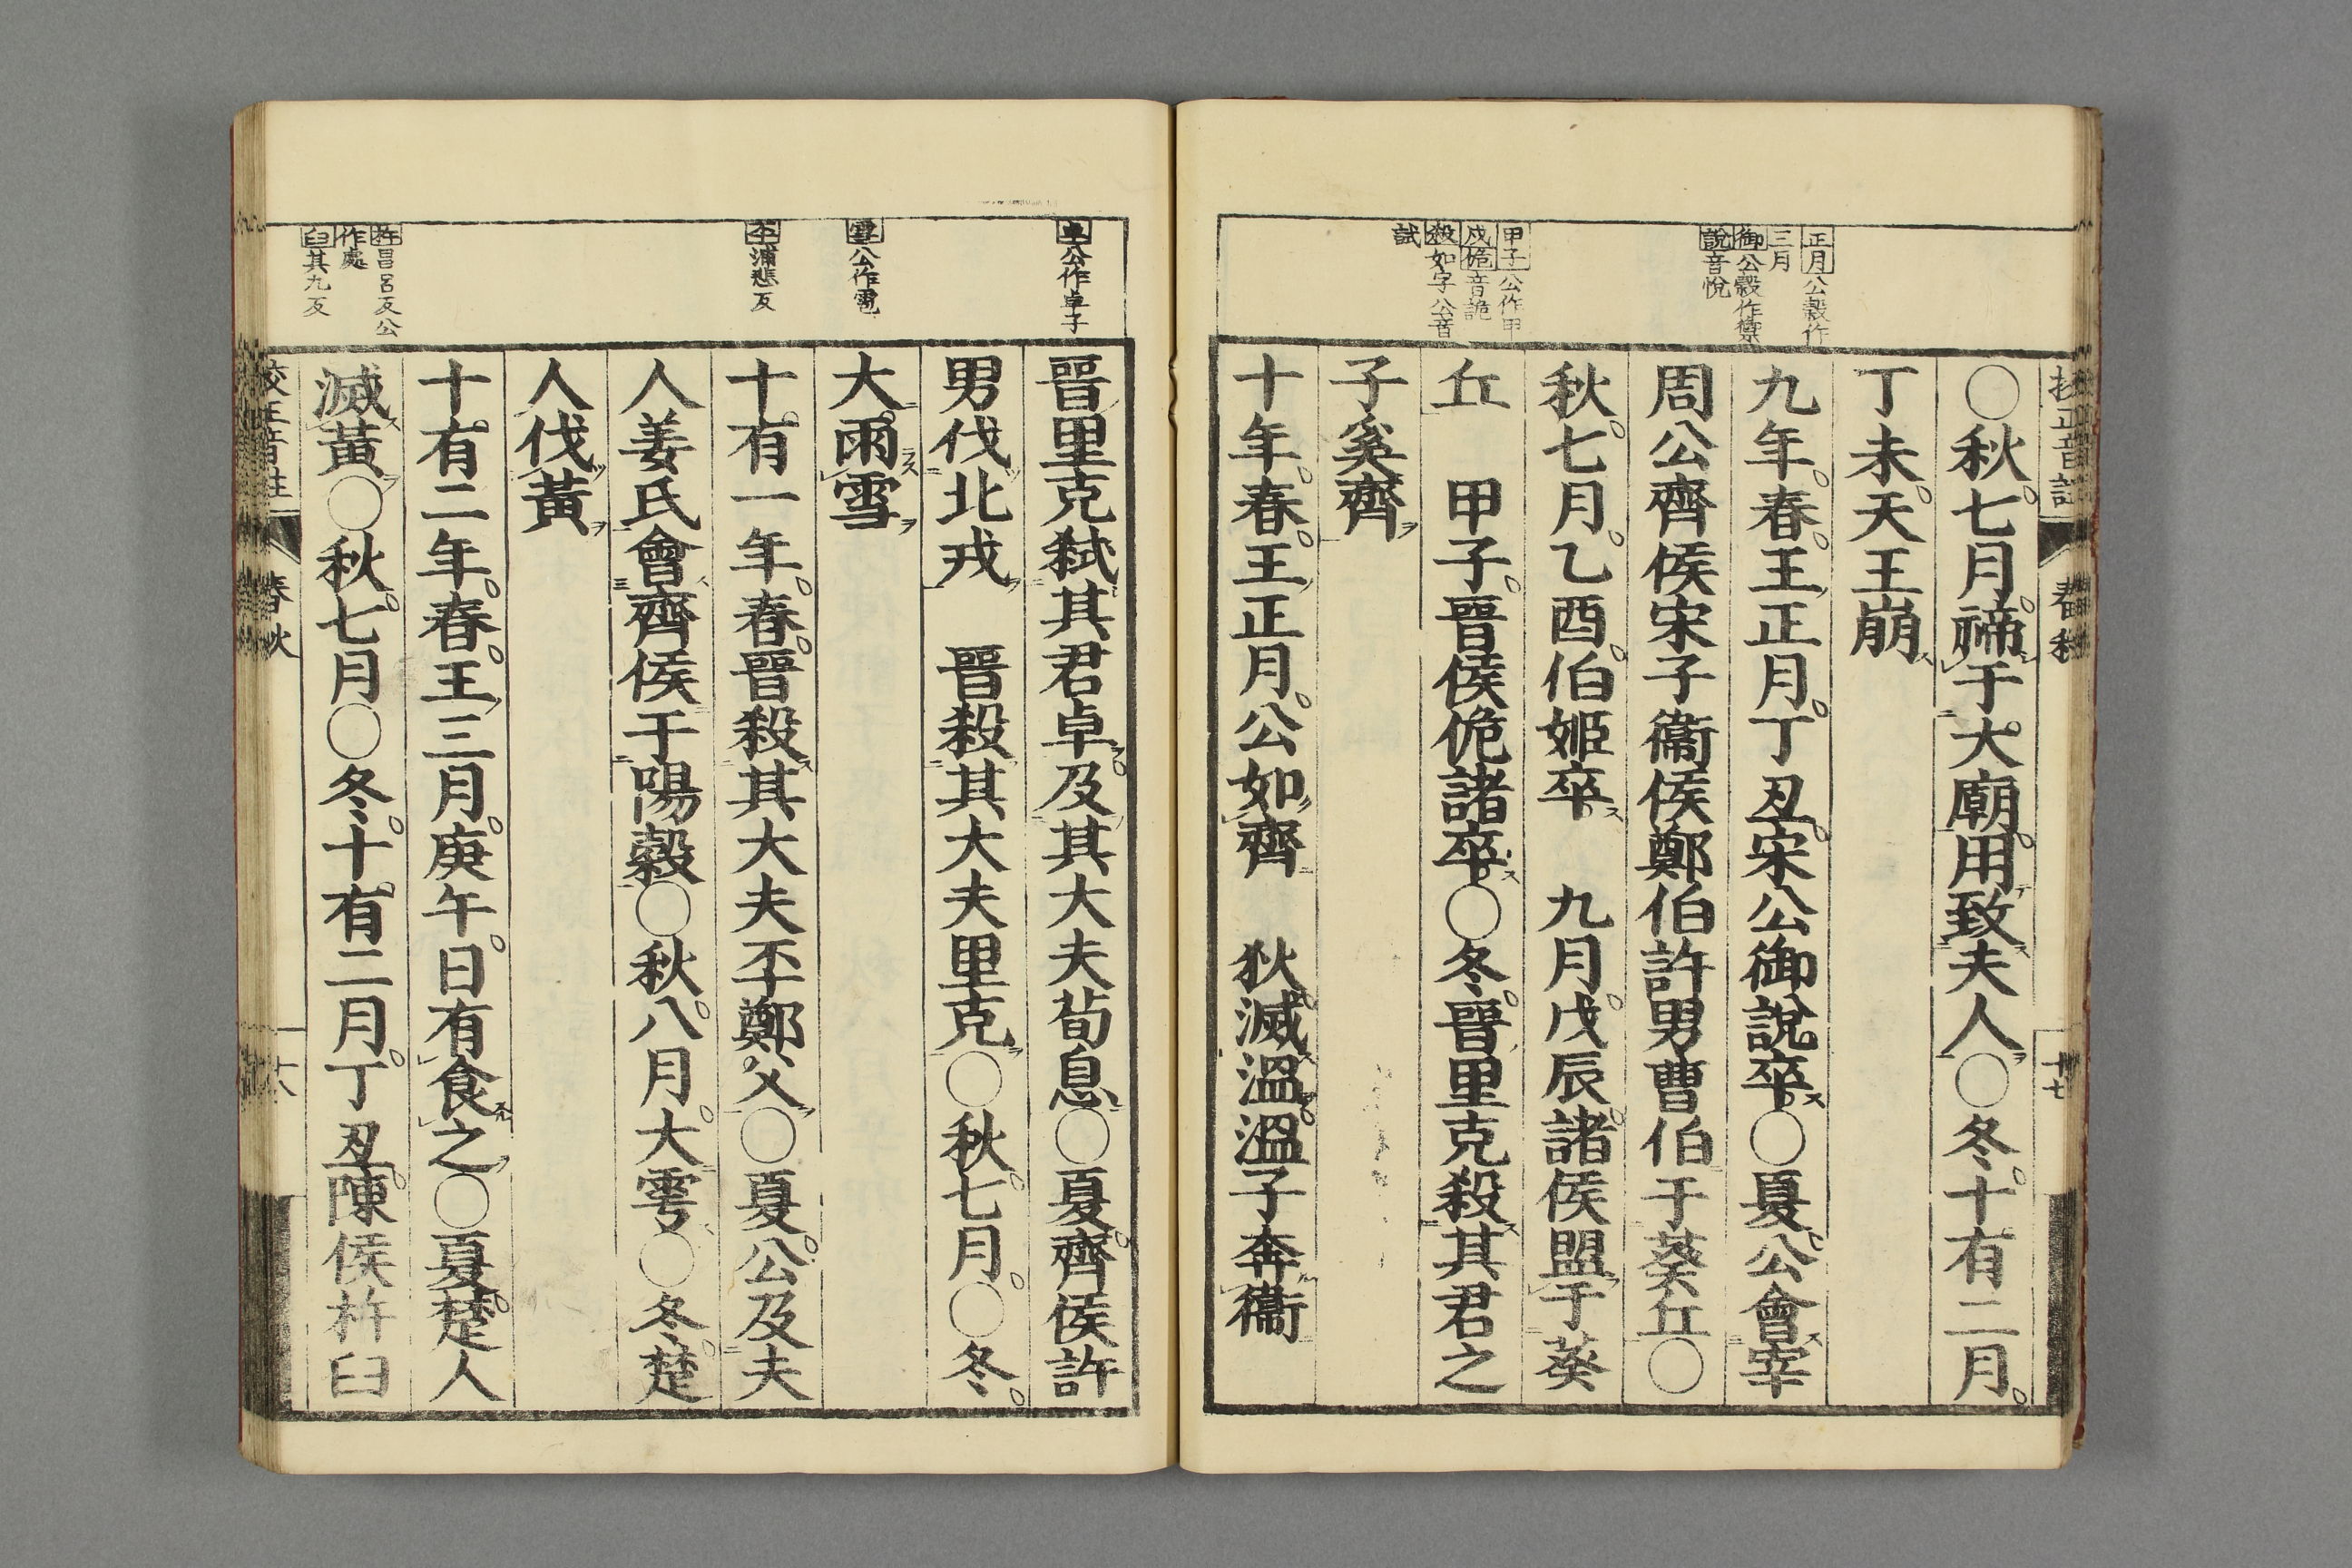 正月公穀作
三月
御公穀作禦
說音悅
甲子公作甲
戌佹音詭
殺如字公音
試
○秋七月禘于大廟用致夫人○冬十有二月
丁未天王崩
九年春王正月丁丑宋公御說卒○夏公會宰
周公齊侯宋子衞侯鄭伯許男曹伯于葵丘○
秋七月乙酉伯姬卒　九月戊辰諸侯盟于葵
丘　甲子晉侯佹諸卒○冬晉里克殺其君之
子奚齊
十年春王正月公如齊　狄滅溫溫子奔衞
春秋
十七
卓公作卓子
雪公作雹
丕浦悲反
杵昌呂反公
作處
臼其九反
晉里克弑其君卓及其大夫荀息○夏齊侯許
男伐北戎　晉殺其大夫里克○秋七月○冬
大雨雪
十有一年春晉殺其大夫丕鄭父○夏公及夫
人姜氏會齊侯于陽穀○秋八月大雩○冬楚
人伐黃
十有二年春王三月庚午日有食之○夏楚人
滅黃○秋七月○冬十有二月丁丑陳侯杵臼
校正音註
春秋